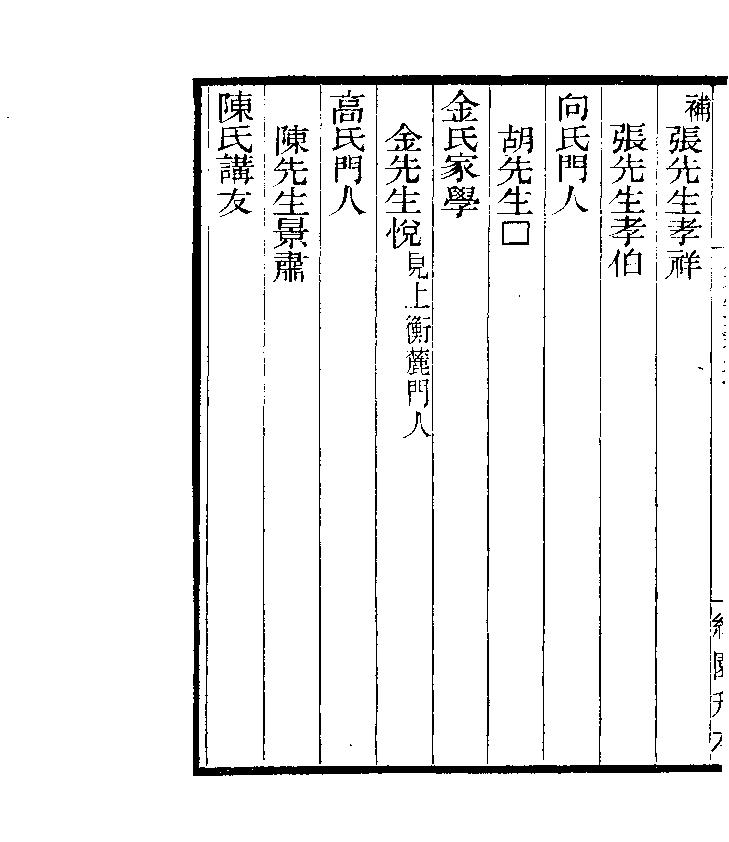 補張先生孝祥
張先生孝伯
向氏門人
胡先生□
金氏家學
金先生悅見上衡麓門人
高氏門人
陳先生景肅
陳氏講友